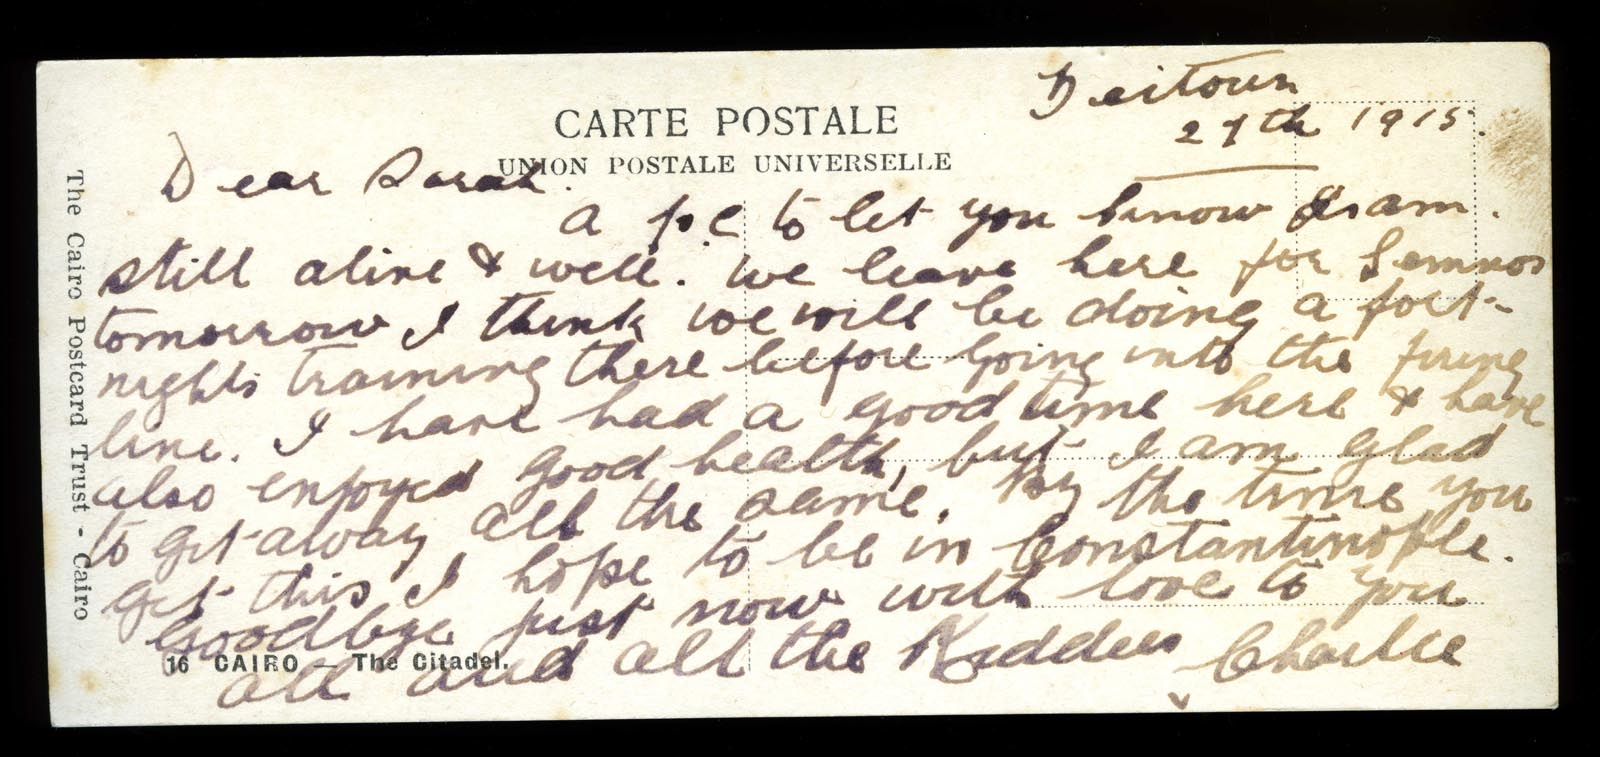 Zeitoun
27th 1915.
CARTE POSTALE
UNION POSTALE UNIVERSELLE
Dear Sarah.
a p.c to let you know I am.
still alive & well. We leave here for Lemnos
tomorrow I think we will be doing a fort-
nights training there before going into the firing
line. I have had a good time here & have
also enjoyed good health, but I am glad
to get away all the same. By the time you
get this I hope to be in Constantinople.
Goodbye just now with love to you
all and all the Kiddies Charlie
16 CAIRO – The Citadel.
The Cairo Postcard Trust - Cairo